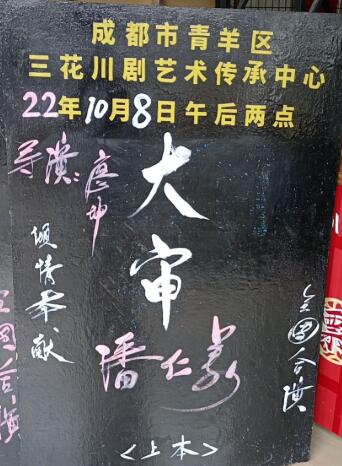 成都市青羊区
三花川剧艺术传承中心
22年10月8日午后两点
导演:廖坤
倾情奉献
大审
潘仁美
全团合演
<上本>
全团合演